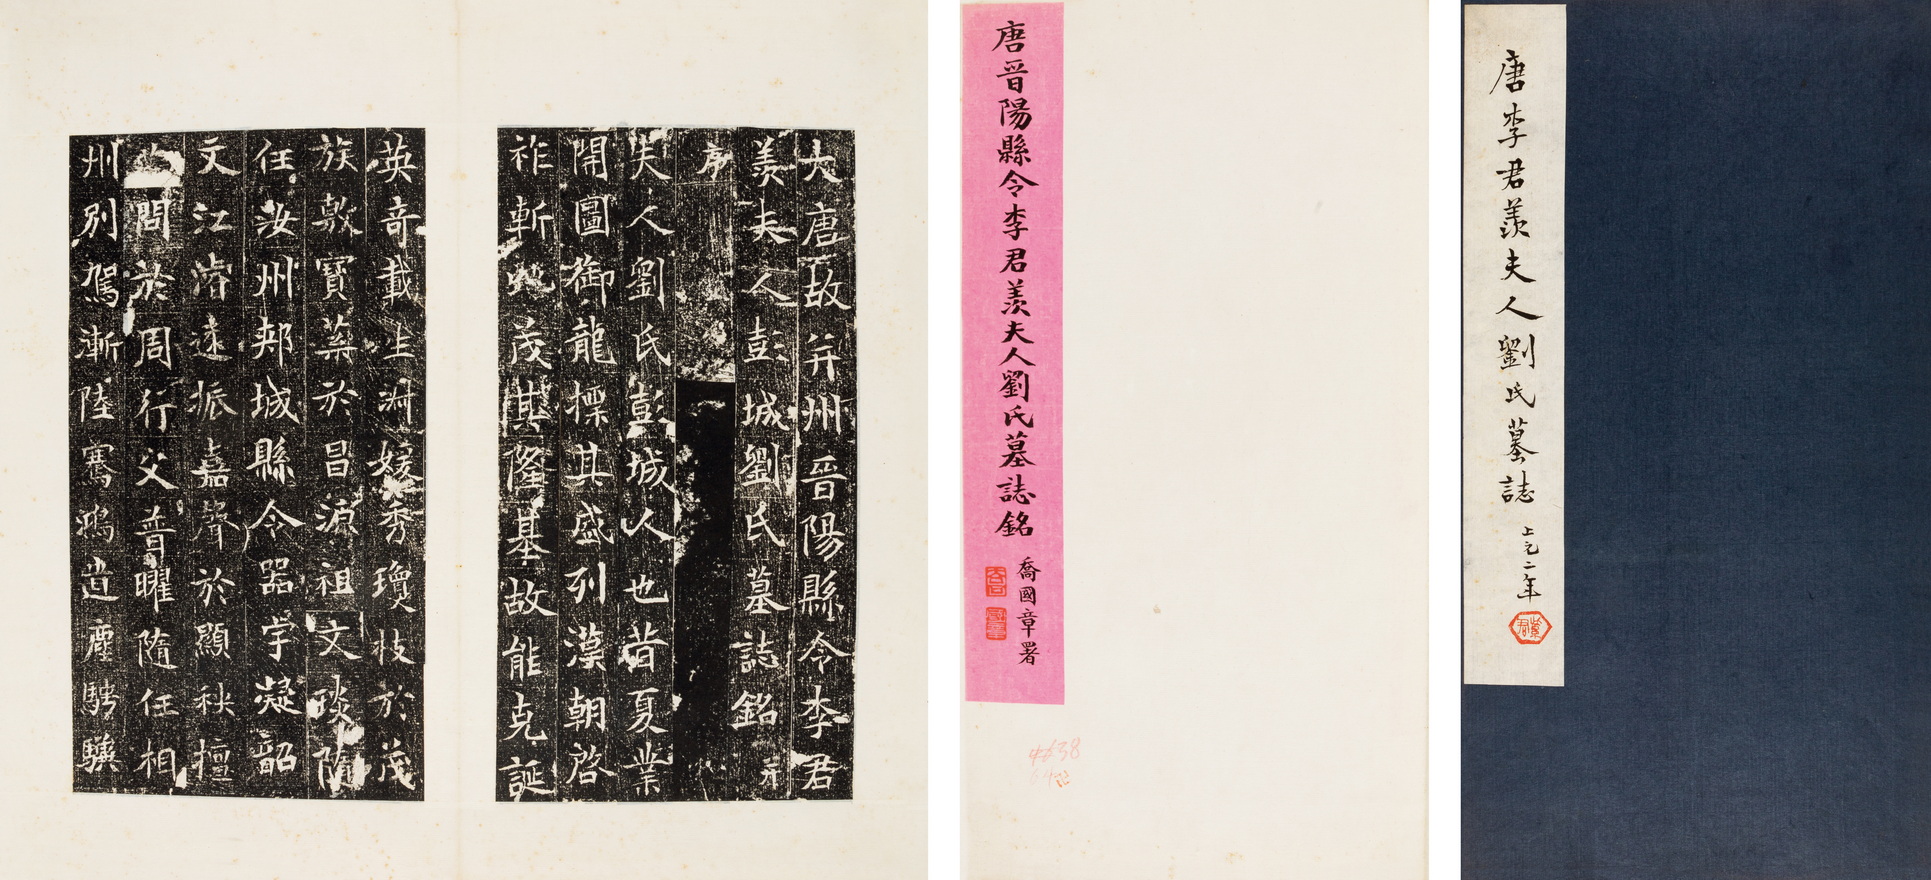 大唐故并州晉陽縣令李君
羨夫人彭城劉氏墓誌銘并
序
夫人劉氏彭城人也昔夏業
開圖御龍摽其盛列漢朝啓
祚斬虵茂其隆基故能克誕
英奇載生淑媛秀瓊枝於茂
族敷寶葉於昌源祖文琰隨
任汝州郟城縣令器宇凝韶
文江濬遠振嘉聲於顯秩檀
問於周行父普曜隨任相
州別駕漸陸騫鴻追塵騁驥
唐晉陽縣令李君羨夫人劉氏墓誌銘
喬國章署
唐李君羨夫人劉氏墓誌
上元二年